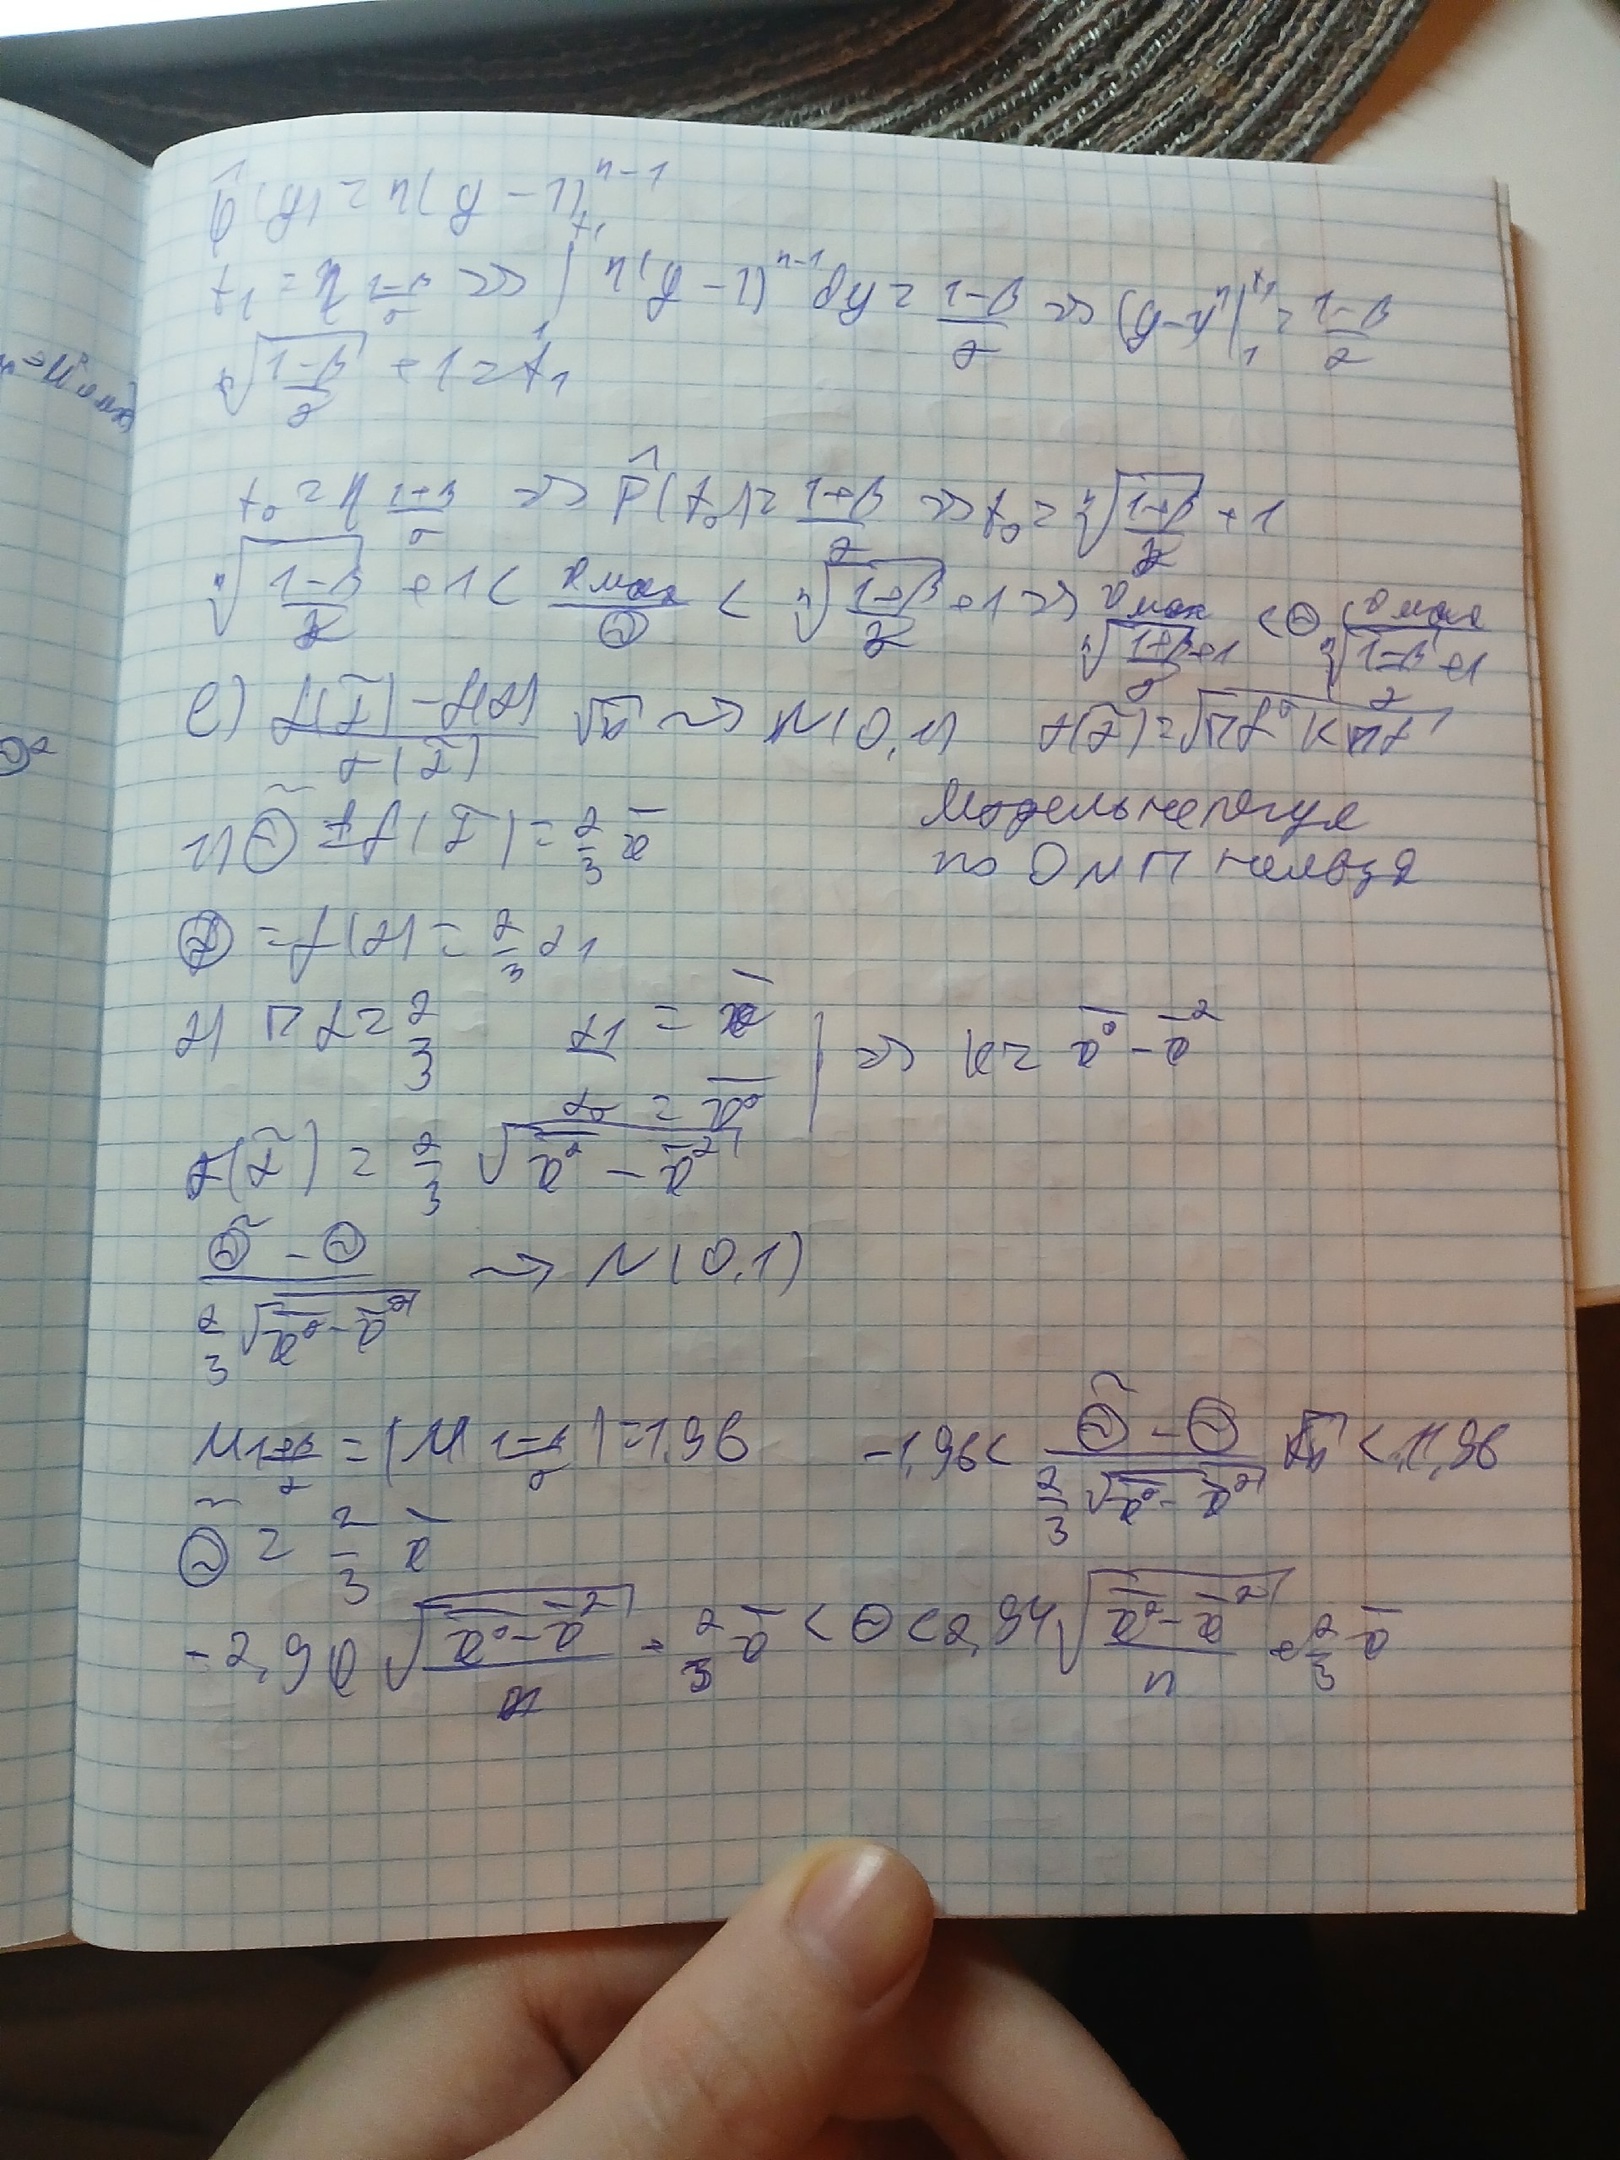 φ̂(y) = n(y-1)^{n-1}
t₁ = η_{\frac{1-β}{2}} => ∫_1^{t₁} n(y-1)^{n-1} dy = \frac{1-β}{2} => (y-1)^n |_1^{t₁} = \frac{1-β}{2}
\sqrt[n]{\frac{1-β}{2}} + 1 = t₁
t₂ = η_{\frac{1+β}{2}} => F̂(t₂) = \frac{1+β}{2} => t₂ = \sqrt[n]{\frac{1+β}{2}} + 1
\sqrt[n]{\frac{1-β}{2}} + 1 < \frac{x max}{Θ} < \sqrt[n]{\frac{1+β}{2}} + 1 => \frac{x max}{\sqrt[n]{\frac{1+β}{2}}+1} < Θ < \frac{x max}{\sqrt[n]{\frac{1-β}{2}}+1}
e) \frac{f(α̃) - f(α)}{σ(α̃)} √n → N(0,1) σ(α̃) = \sqrt{∇f^т K ∇f}
Модель не регул
1) Θ̃ = f(α̃) = \frac{2}{3} x̄
по ОМП нельзя
Θ = f(α) = \frac{2}{3} α₁
2) ∇f = \frac{2}{3} α₁ = x̄
α₂ = \overline{x²} | => K = \overline{x²} - x̄²
σ(α̃) = \frac{2}{3} \sqrt{\overline{x²} - x̄²}
\frac{Θ̃ - Θ}{\frac{2}{3}\sqrt{\overline{x²} - x̄²}} → N(0,1)
u_{\frac{1+β}{2}} = |u_{\frac{1-β}{2}}| = 1,96 -1,96 < \frac{Θ̃ - Θ}{\frac{2}{3}\sqrt{\overline{x²} - x̄²}} √n < 1,96
Θ̃ = \frac{2}{3} x̄
\sqrt{\frac{\overline{x²} - x̄²}{n}} + \frac{2}{3} x̄ < Θ < 2,94 \sqrt{\frac{\overline{x²} - x̄²}{n}} + \frac{2}{3} x̄